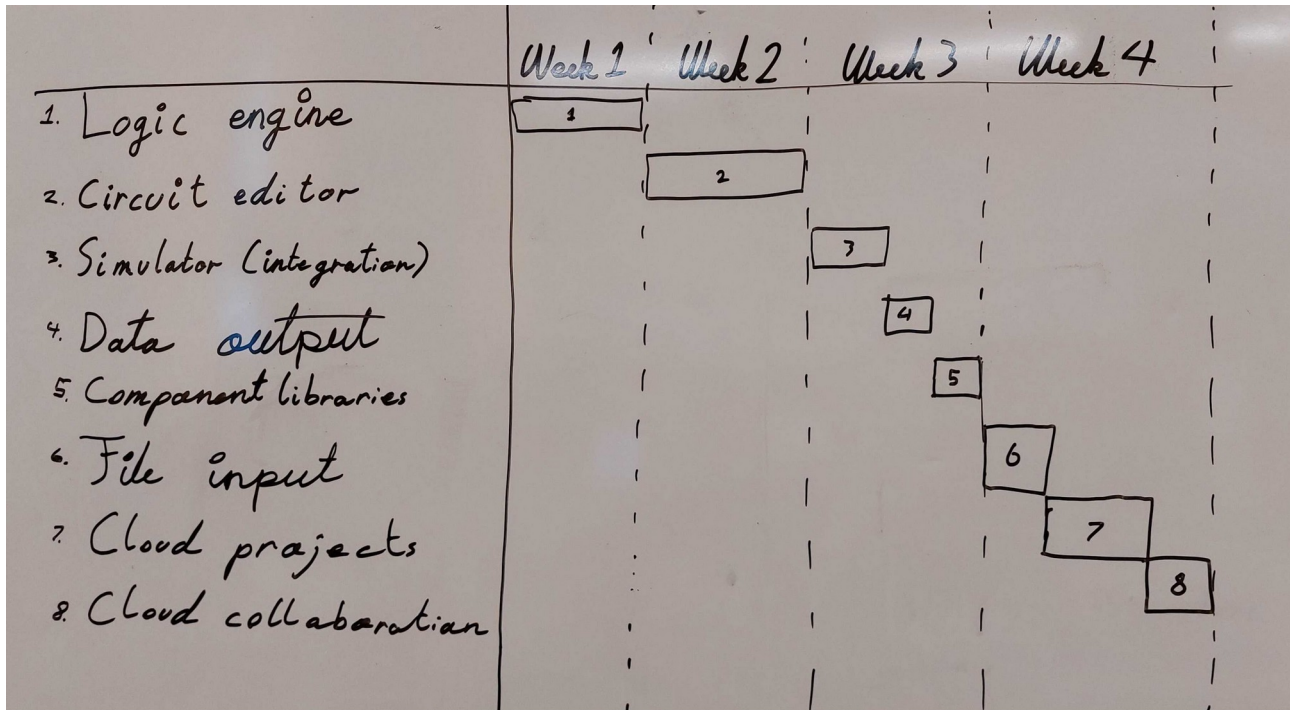 Week 1 Week 2 Week 3 Week 4
1. Logic engine
1
2. Circuit editor
2
3. Simulator (integration)
3
4. Data output
4
5. Component libraries
5
6. File input
6
7. Cloud projects
7
8. Cloud collaboration
8